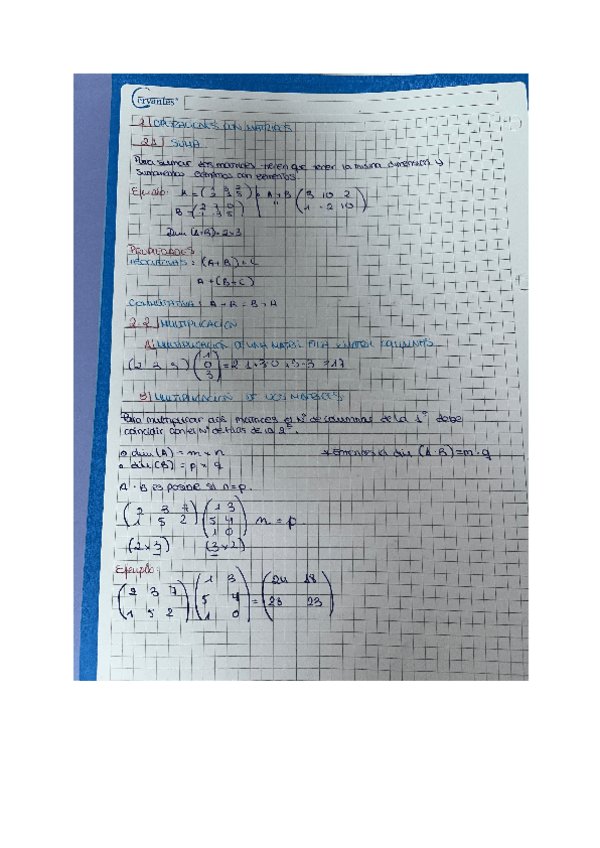 Cervantes
2| OPERACIONES CON MATRICES
2.1| SUMA
Para sumar dos matrices tienen que tener la misma dimensión y
sumaremos elementos con elementos.
Ejemplo: A = A+B (3 10 2
B = 1 -2 10)
Dim (A+B) = 2x3
PROPIEDADES
ASOCIATIVAS: (A+B)+C
A+(B+C)
CONMUTATIVA: A+B = B+A
2.2| MULTIPLICACIÓN
A| MULTIPLICACIÓN DE UNA MATRIZ FILA X MATRIZ COLUMNA
(2 3 3) (1 0 3) = 2·1+3·0+3·3 = 17
B| MULTIPLICACIÓN DE DOS MATRICES
Para multiplicar dos matrices el Nº de columnas de la 1º debe
coincidir con el Nº de filas de la 2º.
dim (A) = m x n * Entonces dim (A·B) = m·q
dim (B) = p x q
A·B es posible si n=p.
(2 3 7 (1 3
1 5 2) 5 4 n = p
1 0)
(2x3) (3x2)
Ejemplo:
(2 3 7 (1 3 (24 18
1 5 2) 5 4 = 28 23)
1 0)